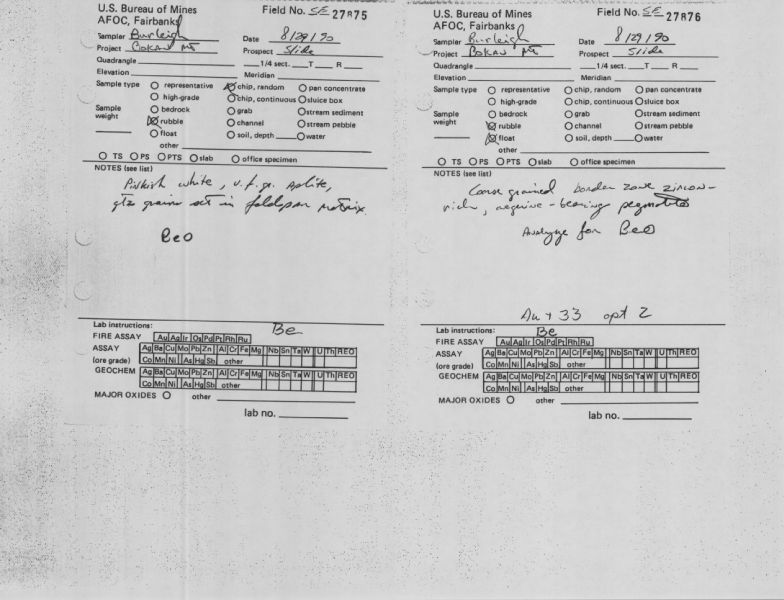 U.S. Bureau of Mines
AFOC, Fairbanks
Field No. SE 27875
Sampler Burleigh Date 8/29/90
Project Bokan Mt Prospect Slide
Quadrangle 1/4 sect. T R
Elevation Meridian
Sample type representative chip, random pan concentrate
high-grade chip, continuous sluice box
Sample weight bedrock grab stream sediment
rubble channel stream pebble
float soil, depth water
other
TS PS PTS slab office specimen
NOTES (see list)
Pinkish white, v.f.gr. aplite,
qtz grains set in feldspar matrix.
BeO
Lab instructions: Be
FIRE ASSAY Au Ag Ir Os Pd Pt Rh Ru
ASSAY Ag Ba Cu Mo Pb Zn Al Cr Fe Mg Nb Sn Ta W U Th REO
(ore grade) Co Mn Ni As Hg Sb other
GEOCHEM Ag Ba Cu Mo Pb Zn Al Cr Fe Mg Nb Sn Ta W U Th REO
Co Mn Ni As Hg Sb other
MAJOR OXIDES other
lab no.
U.S. Bureau of Mines
AFOC, Fairbanks
Field No. SE 27876
Sampler Burleigh Date 8/29/90
Project Bokan Mt Prospect Slide
Quadrangle 1/4 sect. T R
Elevation Meridian
Sample type representative chip, random pan concentrate
high-grade chip, continuous sluice box
Sample weight bedrock grab stream sediment
rubble channel stream pebble
float soil, depth water
other
TS PS PTS slab office specimen
NOTES (see list)
Coarse grained border zone zircon-
rich, aegirine-bearing pegmatite
Analyze for BeO
Au + 33 opt 2
Lab instructions: Be
FIRE ASSAY Au Ag Ir Os Pd Pt Rh Ru
ASSAY Ag Ba Cu Mo Pb Zn Al Cr Fe Mg Nb Sn Ta W U Th REO
(ore grade) Co Mn Ni As Hg Sb other
GEOCHEM Ag Ba Cu Mo Pb Zn Al Cr Fe Mg Nb Sn Ta W U Th REO
Co Mn Ni As Hg Sb other
MAJOR OXIDES other
lab no.